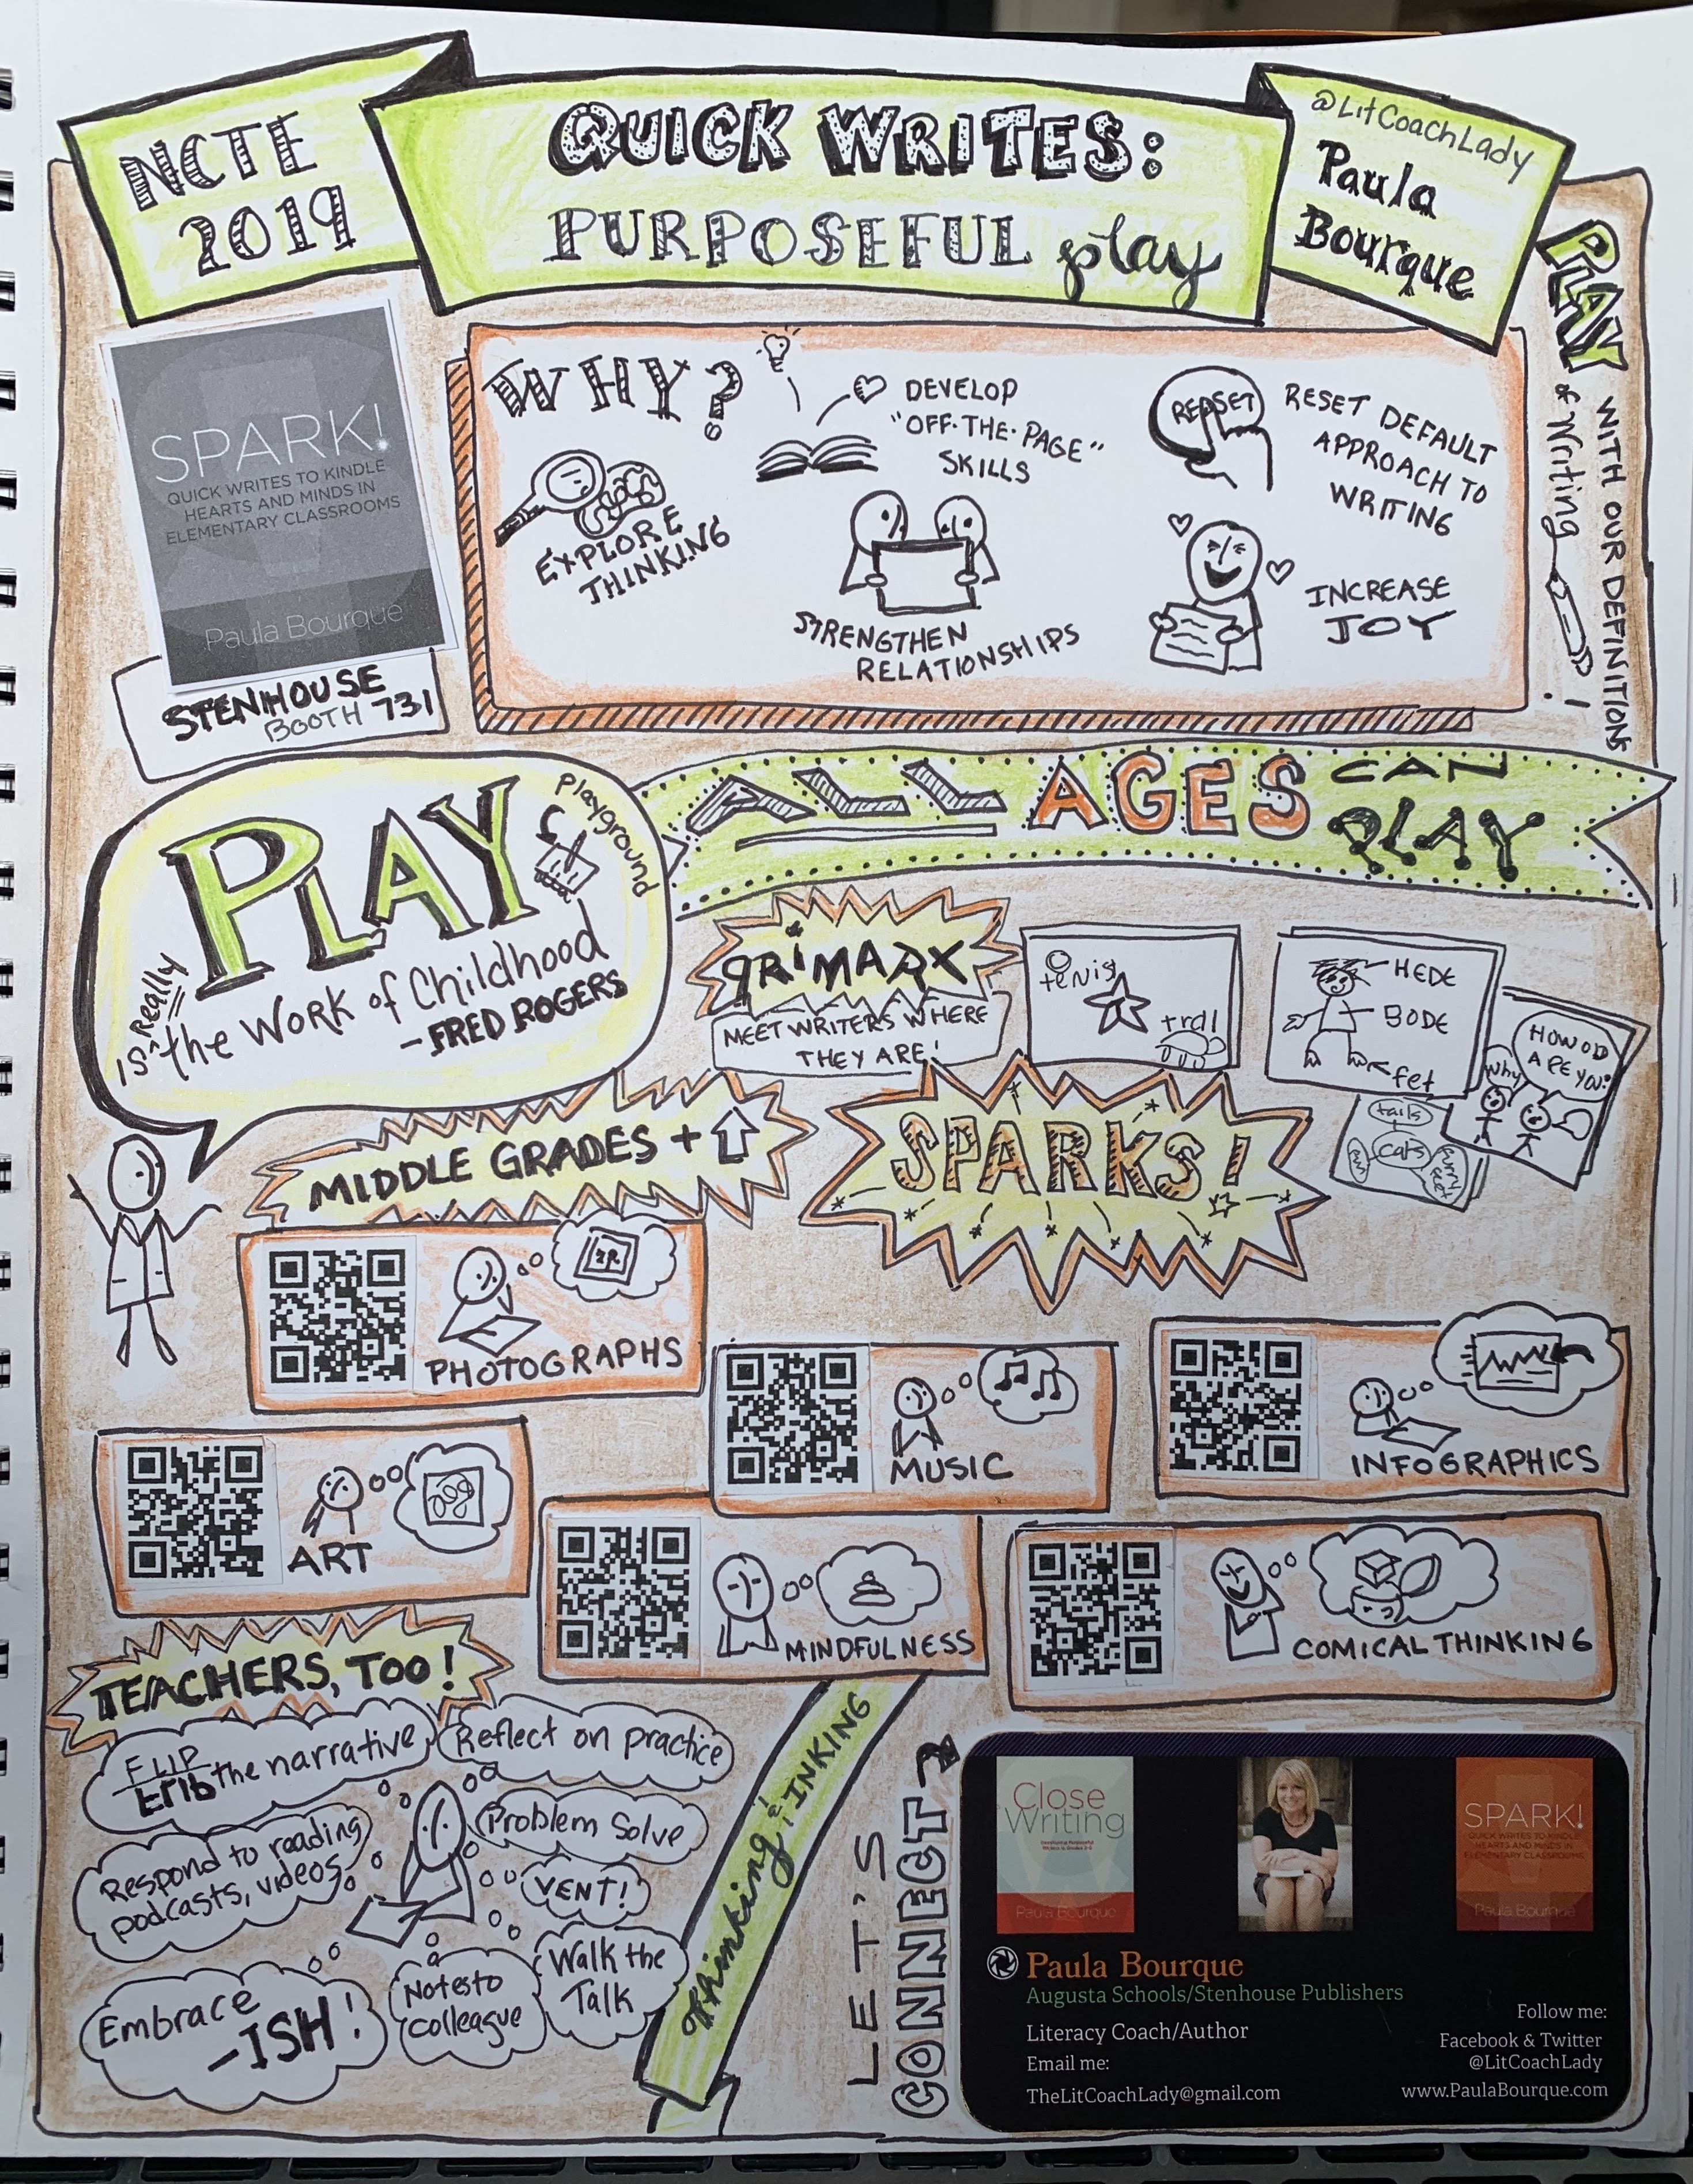 NCTE
2019
QUICK WRITES:
PURPOSEFUL play
@LitCoachLady
Paula
Bourque
PLAY
WITH OUR DEFINITIONS
of Writing!
SPARK!
QUICK WRITES TO KINDLE
HEARTS AND MINDS IN
ELEMENTARY CLASSROOMS
Paula Bourque
STENHOUSE
BOOTH 731
WHY?
EXPLORE
THINKING
DEVELOP
"OFF-THE-PAGE"
SKILLS
STRENGTHEN
RELATIONSHIPS
RESET
RESET DEFAULT
APPROACH TO
WRITING
INCREASE
JOY
PLAY
Playground
is Really the Work of Childhood
-FRED ROGERS
ALL AGES CAN
PLAY
PRIMARY
MEET WRITERS WHERE
THEY ARE!
tenis
tral
HEDE
BODE
fet
HOW OD
ARE YOU?
Why
tails
cats
MIDDLE GRADES +
SPARKS!
PHOTOGRAPHS
MUSIC
INFOGRAPHICS
ART
MINDFULNESS
COMICAL THINKING
TEACHERS, TOO!
FLIP the narrative
Reflect on practice
Respond to reading
podcasts, videos
Problem Solve
VENT!
Embrace
-ISH!
Notes to
colleague
Walk the
Talk
Thinking & INKING
LET'S
CONNECT
Close
Writing
Paula Bourque
SPARK!
QUICK WRITES TO KINDLE
HEARTS AND MINDS IN
ELEMENTARY CLASSROOMS
Paula Bourque
Paula Bourque
Augusta Schools/Stenhouse Publishers
Literacy Coach/Author
Email me:
TheLitCoachLady@gmail.com
Follow me:
Facebook & Twitter
@LitCoachLady
www.PaulaBourque.com